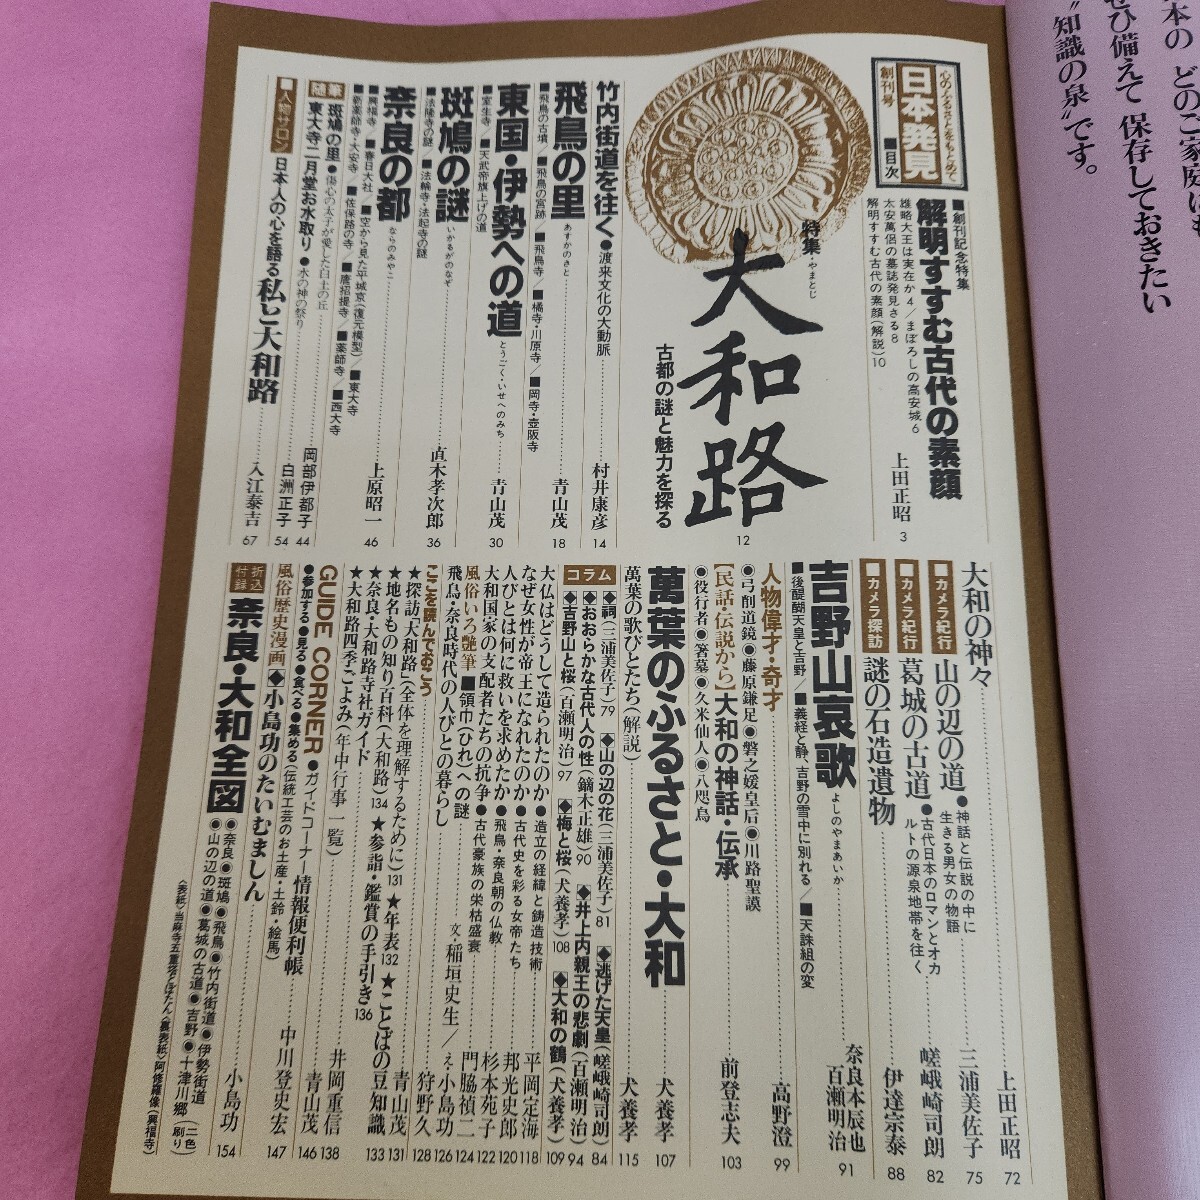 本の どのご家庭にも
ぜひ備えて 保存しておきたい
〝知識の泉〟です。
心のふるさとをもとめて
日本発見
創刊号
■目次
■創刊記念特集
解明すすむ古代の素顔
上田正昭 3
雄略大王は実在か4／まぼろしの高安城6
太安萬侶の墓誌発見さる8
解明すすむ古代の素顔(解説)10
特集・やまとじ
大和路
12
古都の謎と魅力を探る
竹内街道を往く ●渡来文化の大動脈 村井康彦 14
飛鳥の里 あすかのさと 青山茂 18
■飛鳥の古墳／■飛鳥の宮跡／■飛鳥寺／■橘寺・川原寺／■岡寺・壺阪寺
東国・伊勢への道 とうごく・いせへのみち 青山茂 30
■室生寺／■天武帝旗上げの道
斑鳩の謎 いかるがのなぞ 直木孝次郎 36
■法隆寺の謎／■法輪寺・法起寺の謎
奈良の都 ならのみやこ 上原昭一 46
■興福寺／■春日大社／■空から見た平城京(復元模型)／■東大寺
■新薬師寺・大安寺／■佐保路の寺／■唐招提寺／■薬師寺／■西大寺
随筆 斑鳩の里 ●傷心の太子が愛した白土の丘 岡部伊都子 44
東大寺二月堂お水取り ●水の神の祭り 白洲正子 54
■人物サロン 日本人の心を語る 私と大和路 入江泰吉 67
大和の神々 上田正昭 72
■カメラ紀行 山の辺の道 ●神話と伝説の中に生きる男女の物語 三浦美佐子 75
■カメラ紀行 葛城の古道 ●古代日本のロマンとオカルトの源泉地帯を往く 嵯峨崎司朗 82
■カメラ探訪 謎の石造遺物 伊達宗泰 88
吉野山哀歌 よしのやまあいか 奈良本辰也 百瀬明治 91
■後醍醐天皇と吉野／■義経と静、吉野の雪中に別れる／■天誅組の変
人物偉才・奇才 高野澄 99
●弓削道鏡 ●藤原鎌足 ●磐之媛皇后 ●川路聖謨
【民話・伝説から】大和の神話・伝承 前登志夫 103
●役行者 ●箸墓 ●久米仙人 ●八咫烏
萬葉のふるさと・大和 犬養孝 107
萬葉の歌びとたち(解説) 犬養孝 115
コラム ◆祠(三浦美佐子)79 ◆山の辺の花(三浦美佐子)81 ◆逃げた天皇(嵯峨崎司朗)84
◆おおらかな古代人の性(鏑木正雄)90 ◆井上内親王の悲劇(百瀬明治)94
◆吉野山と桜(百瀬明治)97 ◆梅と桜(犬養孝)108 ◆大和の鶴(犬養孝)109
大仏はどうして造られたのか ●造立の経緯と鋳造技術 平岡定海 118
なぜ女性が帝王になれたのか ●古代史を彩る女帝たち 邦光史郎 120
人びとは何に救いを求めたか ●飛鳥・奈良朝の仏教 杉本苑子 122
大和国家の支配者たちの抗争 ●古代豪族の栄枯盛衰 門脇禎二 124
風俗いろ艶筆 ■領巾(ひれ)への謎 文・稲垣史生／え・小島功 126
飛鳥・奈良時代の人びとの暮らし 狩野久 128
ここを読んでおこう
★探訪「大和路」(全体を理解するために)131 ★年表132 ★ことばの豆知識133
青山茂 131
★地名もの知り百科(大和路)134 ★参詣・鑑賞の手引き136
★奈良・大和路寺社ガイド 井岡重信 138
★大和路四季ごよみ(年中行事一覧) 青山茂 146
GUIDE CORNER ●ガイドコーナー 情報便利帳 中川登史宏 147
●参加する●見る●食べる●集める(伝統工芸のお土産・土鈴・絵馬)
風俗歴史漫画 ◆小島功のたいむましん 小島功 154
折込付録 奈良・大和全図
●奈良●斑鳩●飛鳥●竹内街道●伊勢街道
●山の辺の道●葛城の古道●吉野●十津川郷(二色刷り)
〈表紙〉当麻寺五重塔とぼたん〈裏表紙〉阿修羅像(興福寺)